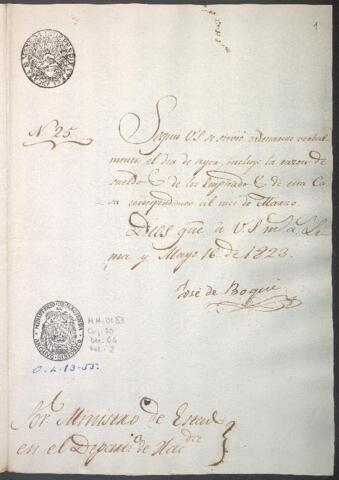 1
Nº 25
Segun V.S. se sirvió ordenarme verbal
mente el dia de ayer, incluyo la razon de
sueldo de los Empleados de esta Ca
sa correspondiente al mes de Marzo.
Dios gue. à V.S. m. a. Li
ma y Mayo 16 de 1823.
José de Boqui
O.L. 73-55.
Sor. Ministro de Estad
en el Departo. de Hacda